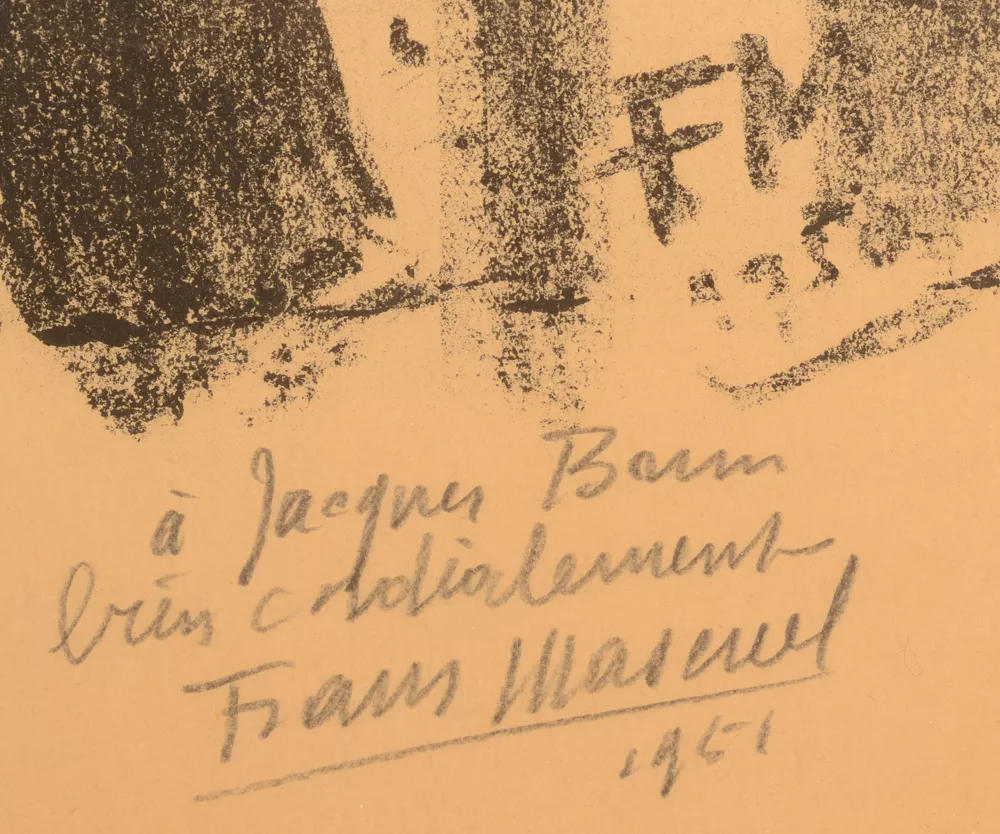 FM
1950
à Jacques Baum
bien cordialement
Frans Masereel
1951